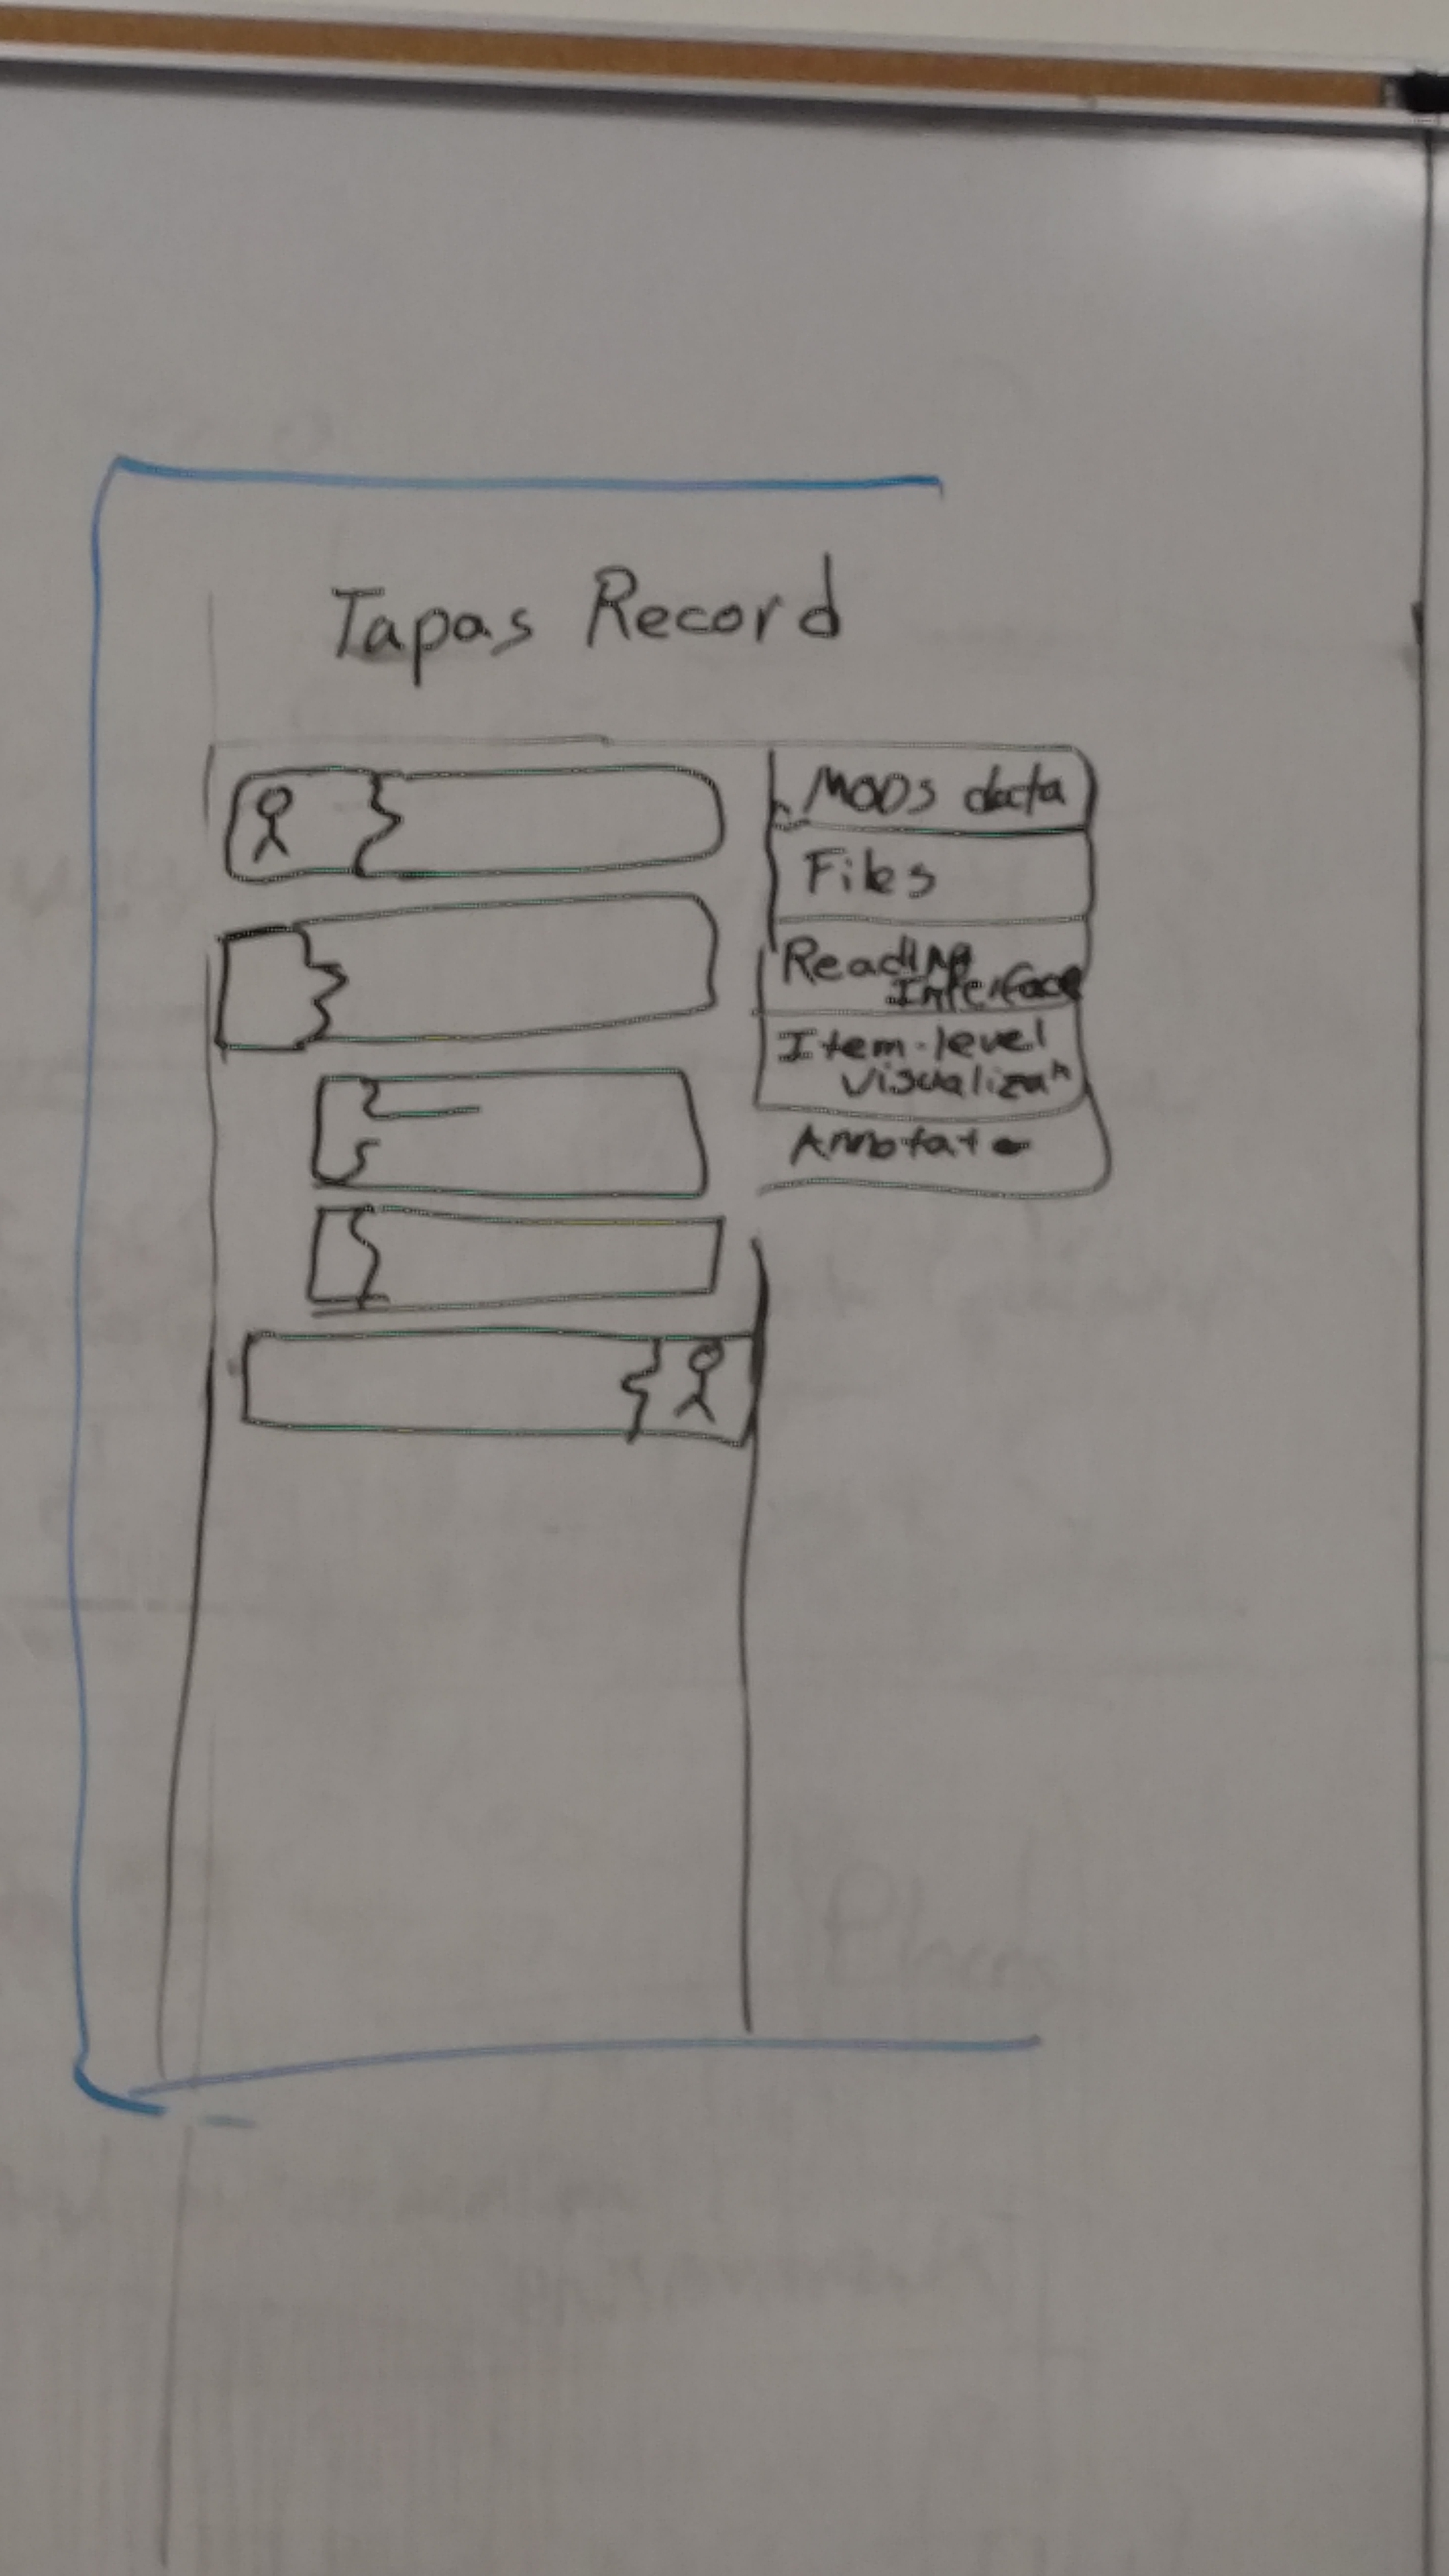 Tapas Record
MODS data
Files
Reading
Interface
Item-level
Visualizan
Annotat